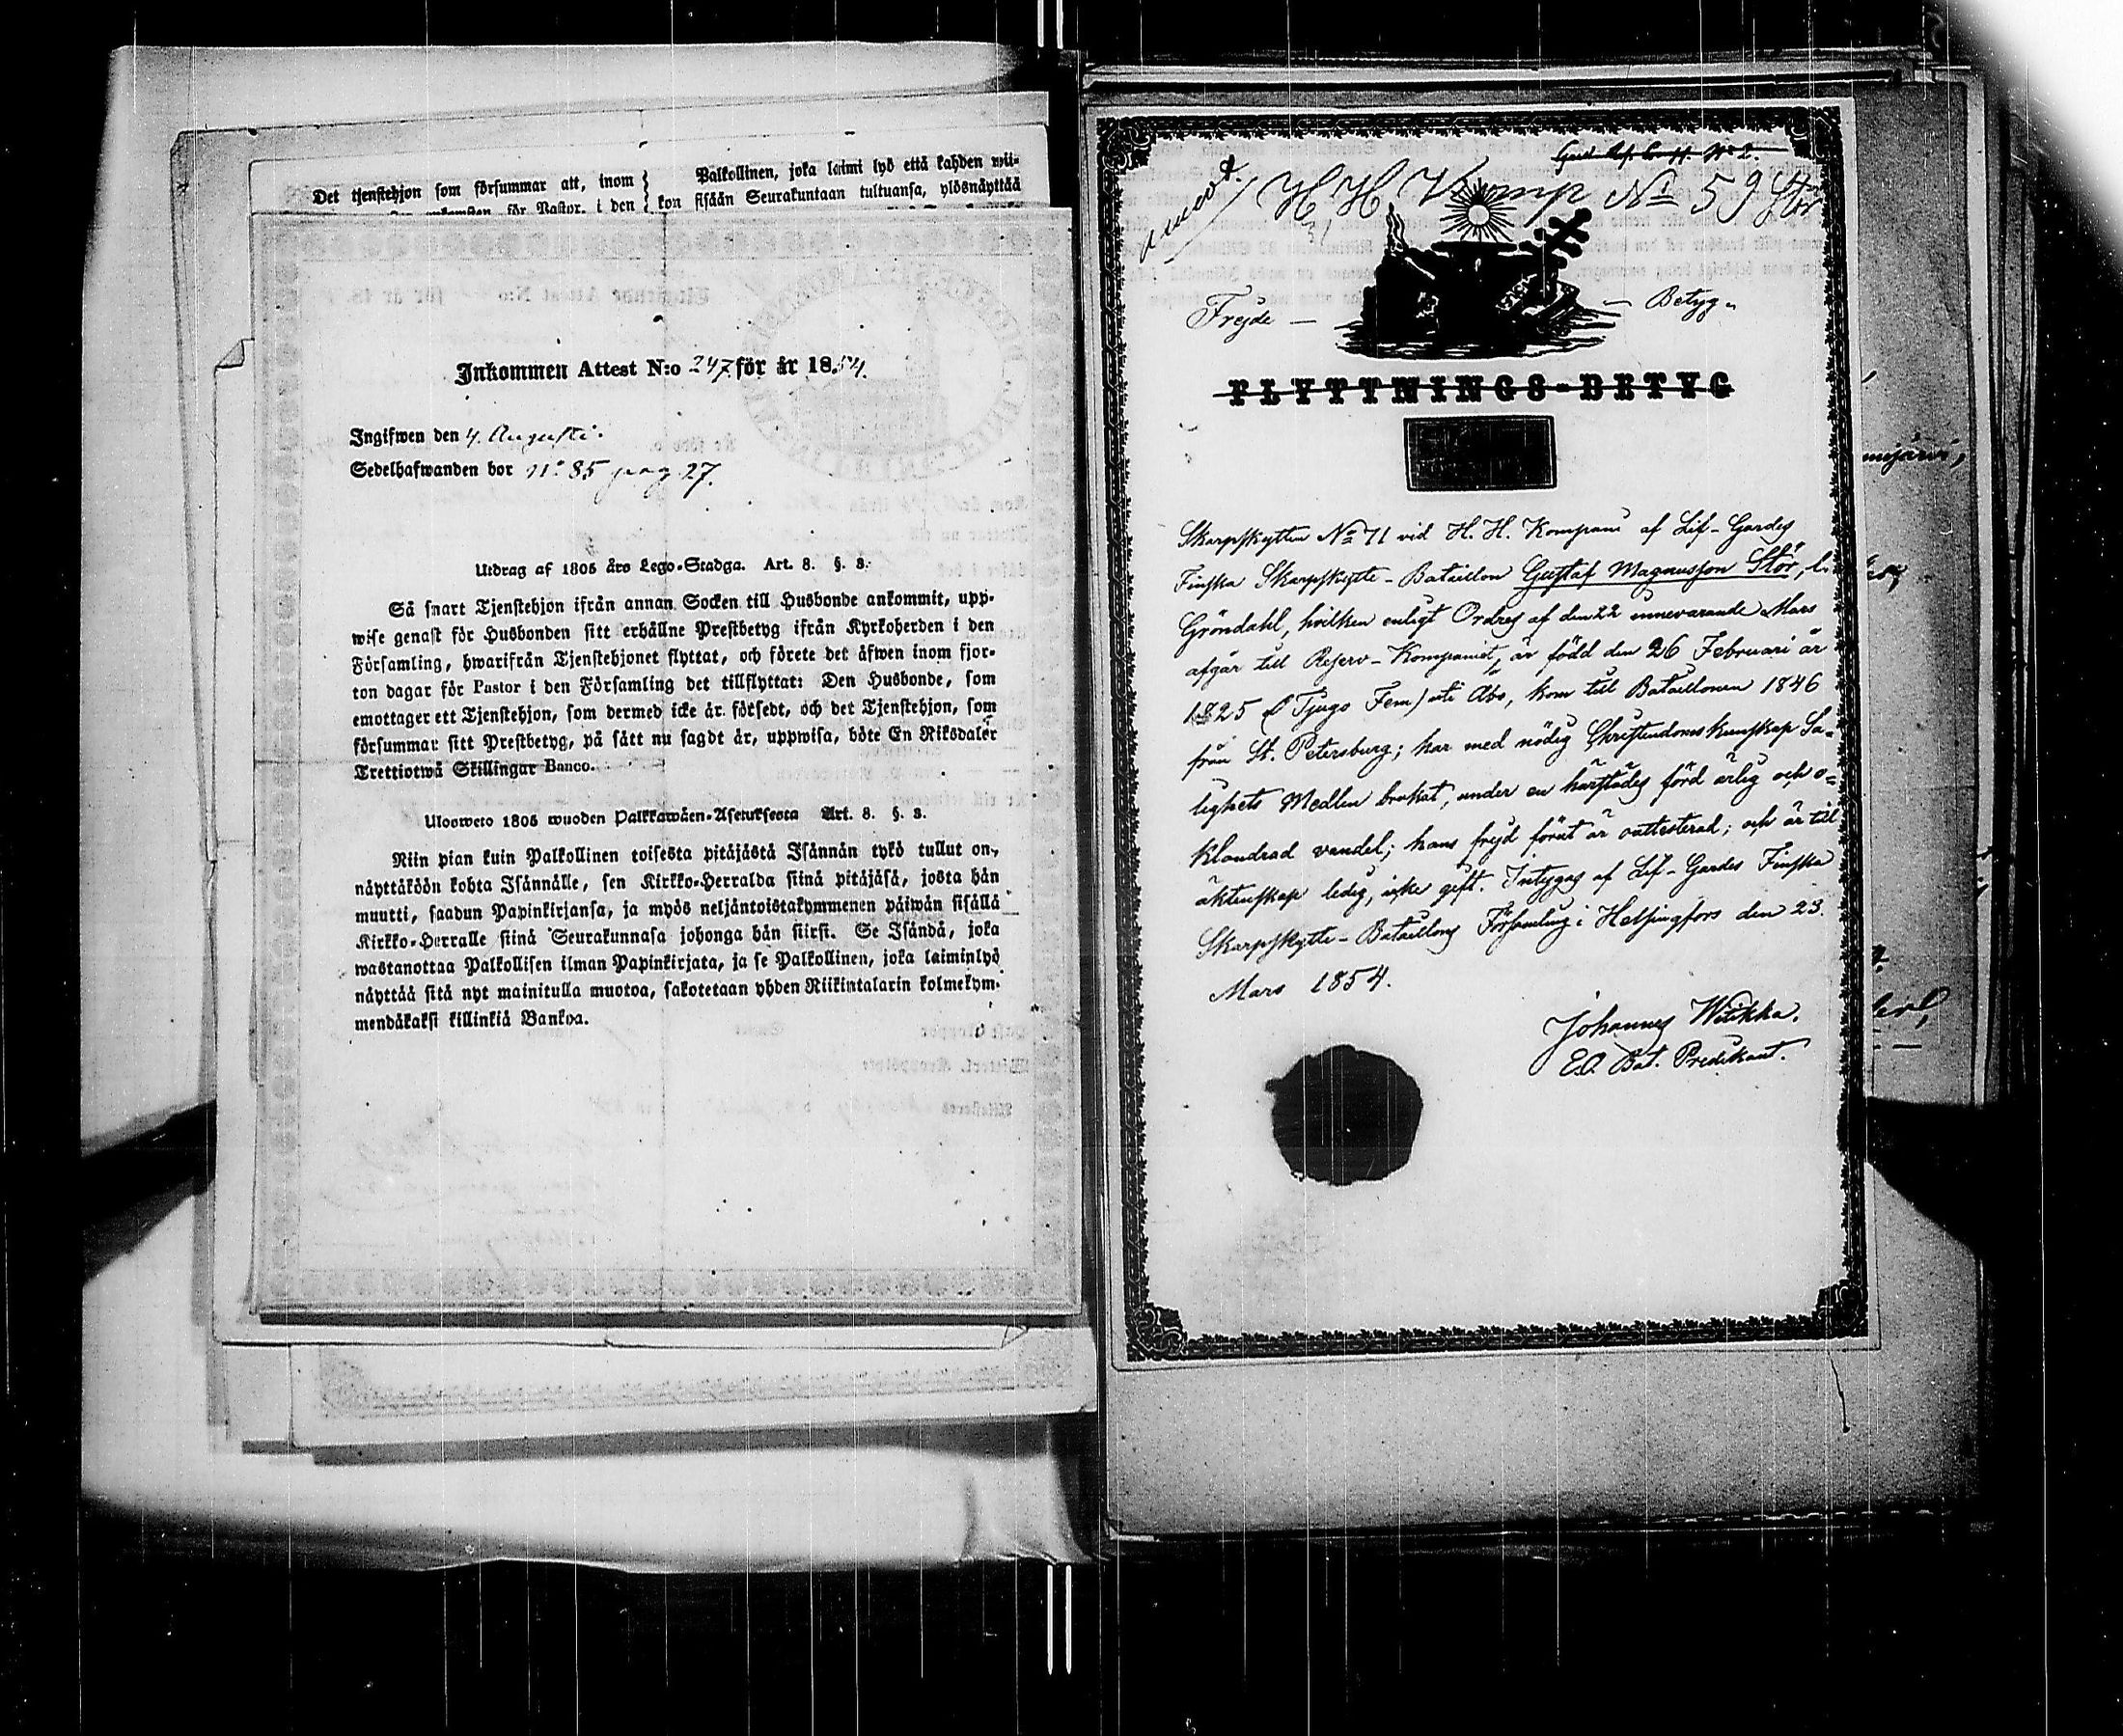 Det tjenstehjon som försummar att, inom
Palkollinen, joka laimi lyö että kahden wii-
kon sisään Seurakuntaan tultuansa, ylösnäyttää
Inkommen Attest N:o 247 för år 1854.
Ingifwen den 4. Augusti.
Sedelhafwanden bor n:o 85 pag. 27.
Utdrag af 1805 års Lego-Stadga. Art. 8. §. 3.
Så snart Tjenstehjon ifrån annan Socken till Husbonde ankommit, upp-
wise genast för Husbonden sitt erhållne Prestbetyg ifrån Kyrkoherden i den
Församling, hwarifrån Tjenstehjonet flyttat, och förete det äfwen inom fjor-
ton dagar för Pastor i den Församling det tillflyttat: Den Husbonde, som
emottager ett Tjenstehjon, som dermed icke är försedt, och det Tjenstehjon, som
försummar sitt Prestbetyg, på sätt nu sagdt är, uppwisa, böte En Riksdaler
Trettiotwå Skillingar Banco.
Ulosweto 1805 wuoden Palkkawäen-Asetuksesta Art. 8. §. 3.
Niin pian kuin Palkollinen toisesta pitäjästä Isännän tykö tullut on,
näyttäköön kohta Isännälle, sen Kirkko-Herralda siinä pitäjäsä, josta hän
muutti, saadun Papinkirjansa, ja myös neljäntoistakymmenen päiwän sisällä
Kirkko-Herralle siinä Seurakunnasa johonga hän siirsi. Se Isändä, joka
wastanottaa Palkollisen ilman Papinkirjata, ja se Palkollinen, joka laiminlyö
näyttää sitä nyt mainitulla muotoa, sakotetaan yhden Riikintalarin kolmekym-
mendäkaksi killinkiä Bankoa.
H. H. Komp No 59 Stör
Frejde — — Betyg
FLYTTNINGS-BETYG
Skarpskytten No 71 vid H. H. Kompani af Lif-Gardes
Finska Skarpskytte-Bataillon Gustaf Magnusson Stör,
Gröndahl, hvilken enligt Ordres af den 22 innevarande Mars
afgår till Reserv-Kompaniet, är född den 26 Februari år
1825 (Tjugo Fem) uti Åbo, kom till Bataillonen 1846
från St. Petersburg; har med nödig Christendomskunskap Sa-
lighets Medlen brukat, under en härstädes förd ärlig och o-
klandrad vandel; hans frejd förut är oattesterad; och är till
äktenskap ledig, icke gift. Intygas af Lif-Gardes Finska
Skarpskytte-Bataillons Församling i Helsingfors den 23.
Mars 1854.
Johannes Weikka.
E.O. Bat. Predikant.